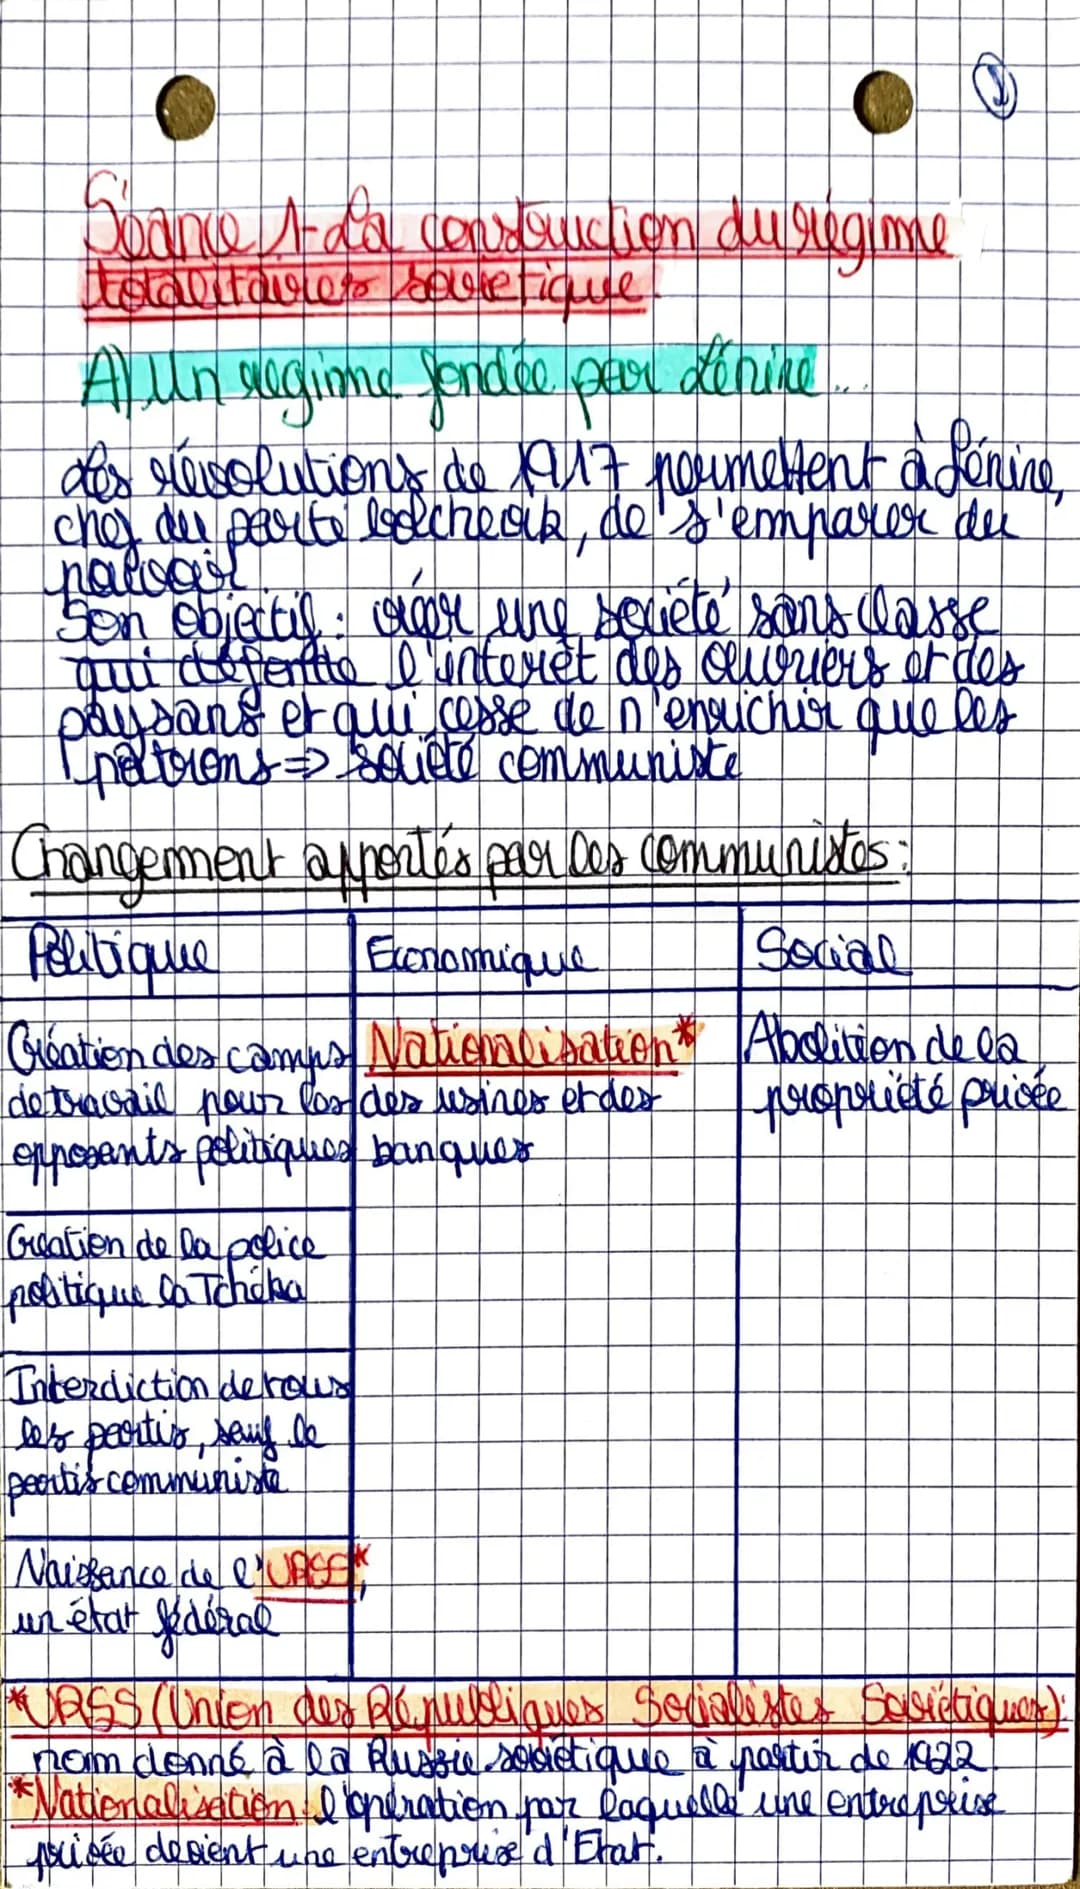 1
Séance 1- La construction du régime
totalitaires soviétique.
A) Un régime fondée par Lénine...
Les révolutions de 1917 permettent à Lénine,
chef du parti bolchevik, de s'emparer du
pouvoir.
Son objectif : créer une société sans classe
qui défentte l'interet des ouvriers et des
paysans et qui cesse de n'enrichir que les
patrons => société communiste
Changement apportés par les communistes :
Politique
Economique
Social
Création des camps
de travail pour les
opposants politiques
Nationalisation*
des usines et des
banques
Abolition de la
propriété privée
Création de la police
politique la Tchéka
Interdiction de tous
les partis, sauf le
partis communiste
Naissance de l'URSS*,
un état fédéral
*URSS (Union des Républiques Socialistes Soviétiques):
nom donné à la Russie soviétique à partir de 1922.
*Nationalisation: l'opération par laquelle une entreprise
privée devient une entreprise d'Etat.